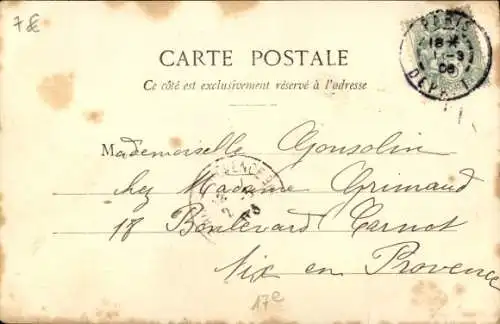 7€
PARIS
18 *
1 -3
03
DEPART
CARTE POSTALE
Ce côté est exclusivement réservé à l'adresse
Mademoiselle Gonsolin
chez Madame Grimaud
18 Boulevard Carnot
Aix en Provence
17e